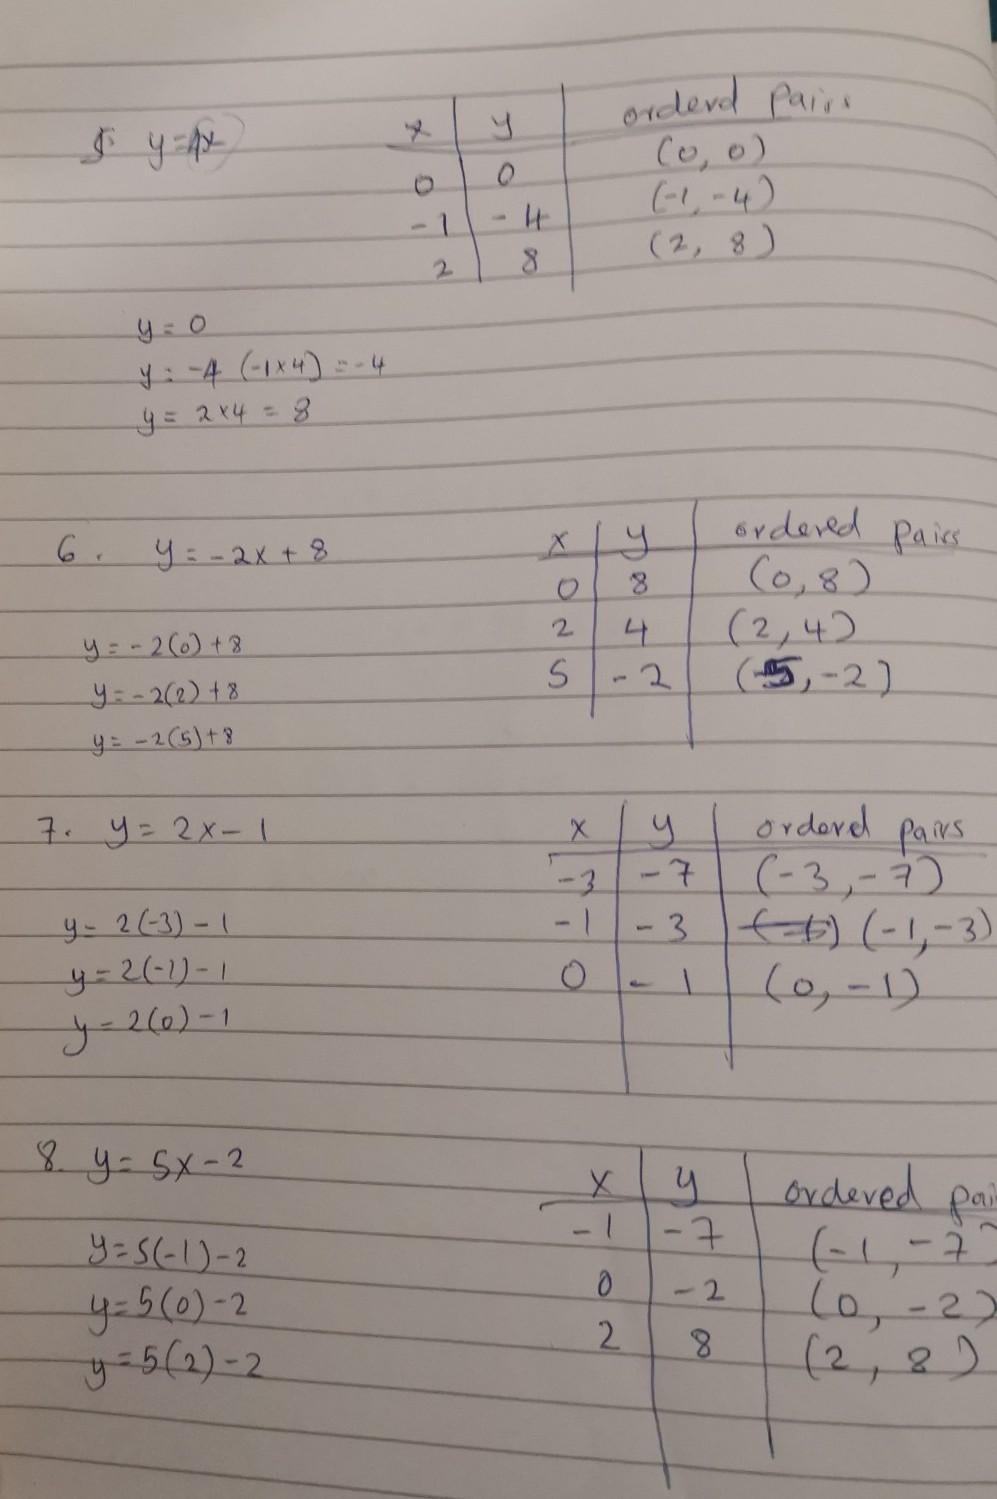 5. y=4x
x y orderd pairs
0 0 (0, 0)
-1 -4 (-1, -4)
2 8 (2, 8)
y = 0
y = -4 (-1x4) = -4
y = 2x4 = 8
6. y = -2x + 8
x y ordered pairs
0 8 (0, 8)
y = -2(0) + 8
2 4 (2, 4)
y = -2(2) + 8
5 -2 (5, -2)
y = -2(5) + 8
7. y = 2x - 1
x y ordered pairs
-3 -7 (-3, -7)
y = 2(-3) - 1
-1 -3 (-1, -3)
y = 2(-1) - 1
0 -1 (0, -1)
y = 2(0) - 1
8. y = 5x - 2
x y ordered pai
y = 5(-1) - 2
-1 -7 (-1, -7)
y = 5(0) - 2
0 -2 (0, -2)
y = 5(2) - 2
2 8 (2, 8)